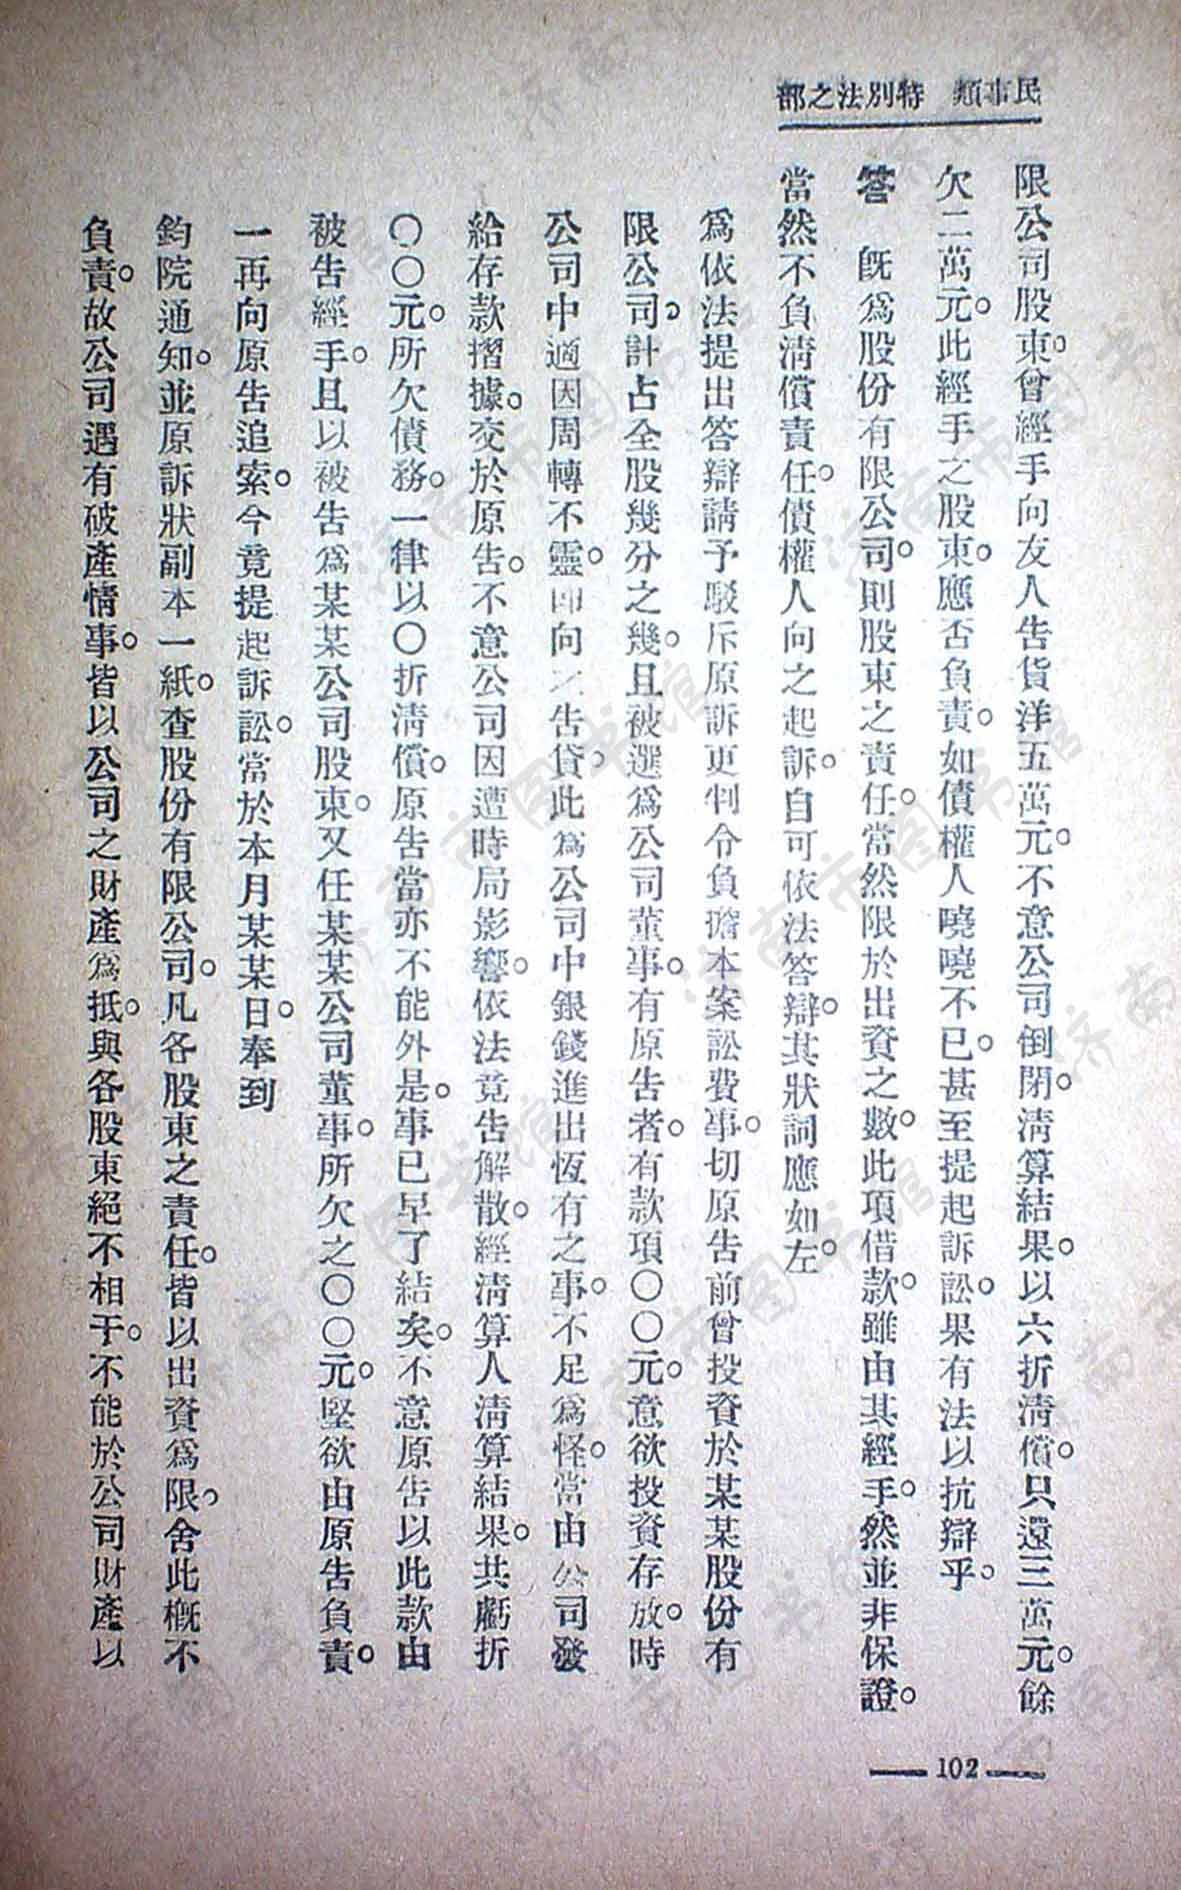 民事類　特別法之部
限公司股東。曾經手向友人告貨洋五萬元。不意公司倒閉。淸算結果。以六折淸償。只還三萬元。餘
欠二萬元。此經手之股東。應否負責。如債權人嘵嘵不已。甚至提起訴訟。果有法以抗辯乎。
答　旣爲股份有限公司。則股東之責任。當然限於出資之數。此項借款。雖由其經手。然並非保證。
當然不負淸償責任。債權人向之起訴。自可依法答辯。其狀詞應如左。
爲依法提出答辯請予駁斥原訴更判令負擔本案訟費事。切原告前曾投資於某某股份有
限公司。計占全股幾分之幾。且被選爲公司董事。有原告者。有款項〇〇元。意欲投資存放。時
公司中適因周轉不靈。卽向之告貸。此爲公司中銀錢進出恆有之事。不足爲怪。當由公司發
給存款摺據。交於原告。不意公司因遭時局影響。依法竟告解散。經淸算人淸算結果。共虧折
〇〇元。所欠債務。一律以〇折淸償。原告當亦不能外是。事已早了結矣。不意原告以此款由
被告經手。且以被告爲某某公司股東。又任某某公司董事。所欠之〇〇元。堅欲由原告負責。
一再向原告追索。今竟提起訴訟。當於本月某某日。奉到
鈞院通知。並原訴狀副本一紙。查股份有限公司。凡各股東之責任。皆以出資爲限。舍此槪不
負責。故公司遇有破產情事。皆以公司之財產爲抵。與各股東絕不相干。不能於公司財產以
102
济南市图书馆